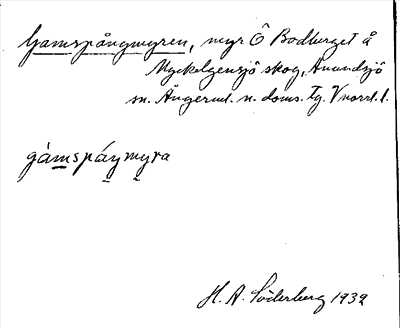 Gamspångmyren, myr Ö Bodberget å
Myckelgensjö skog, Anundsjö
sn. Ångerml. n. doms. Tg. Vnorrl. l.
gàmspáŋmyra
H. A. Söderberg 1932